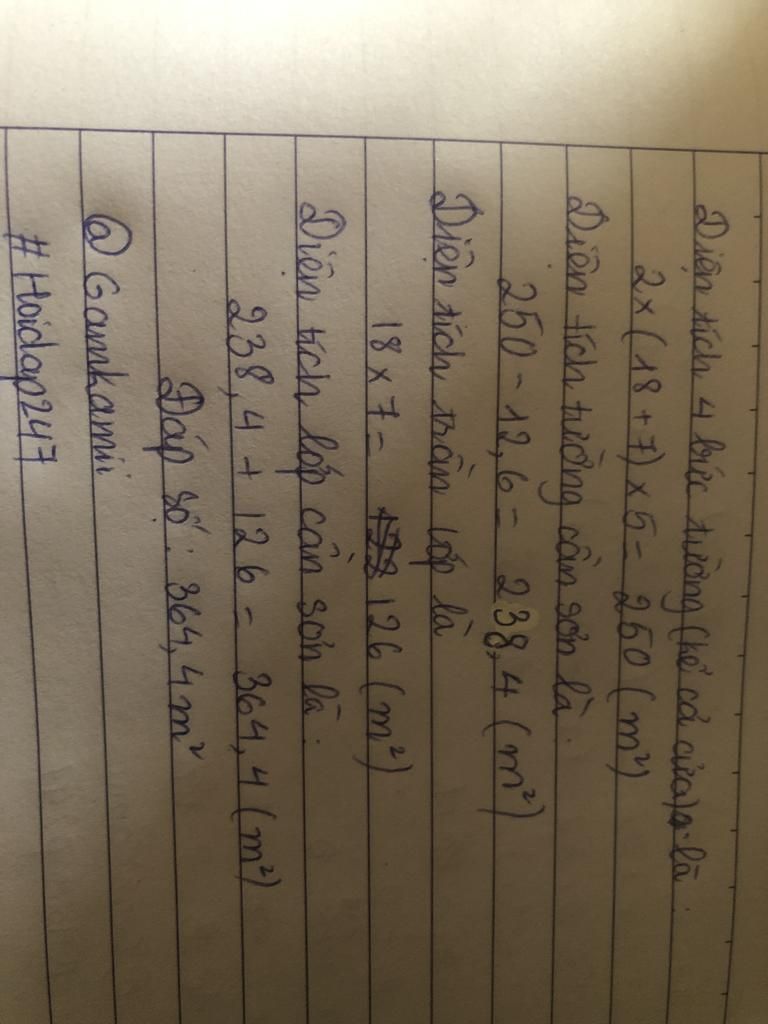 Diện tích 4 bức tường (kể cả cửa) là:
2 x (18 + 7) x 5 = 250 (m²)
Diện tích tường cần sơn là:
250 - 12,6 = 238,4 (m²)
Diện tích trần lớp là
18 x 7 = 126 (m²)
Diện tích lớp cần sơn là:
238,4 + 126 = 364,4 (m²)
Đáp số: 364,4 m²
@Gamkamii
#Hoidap247